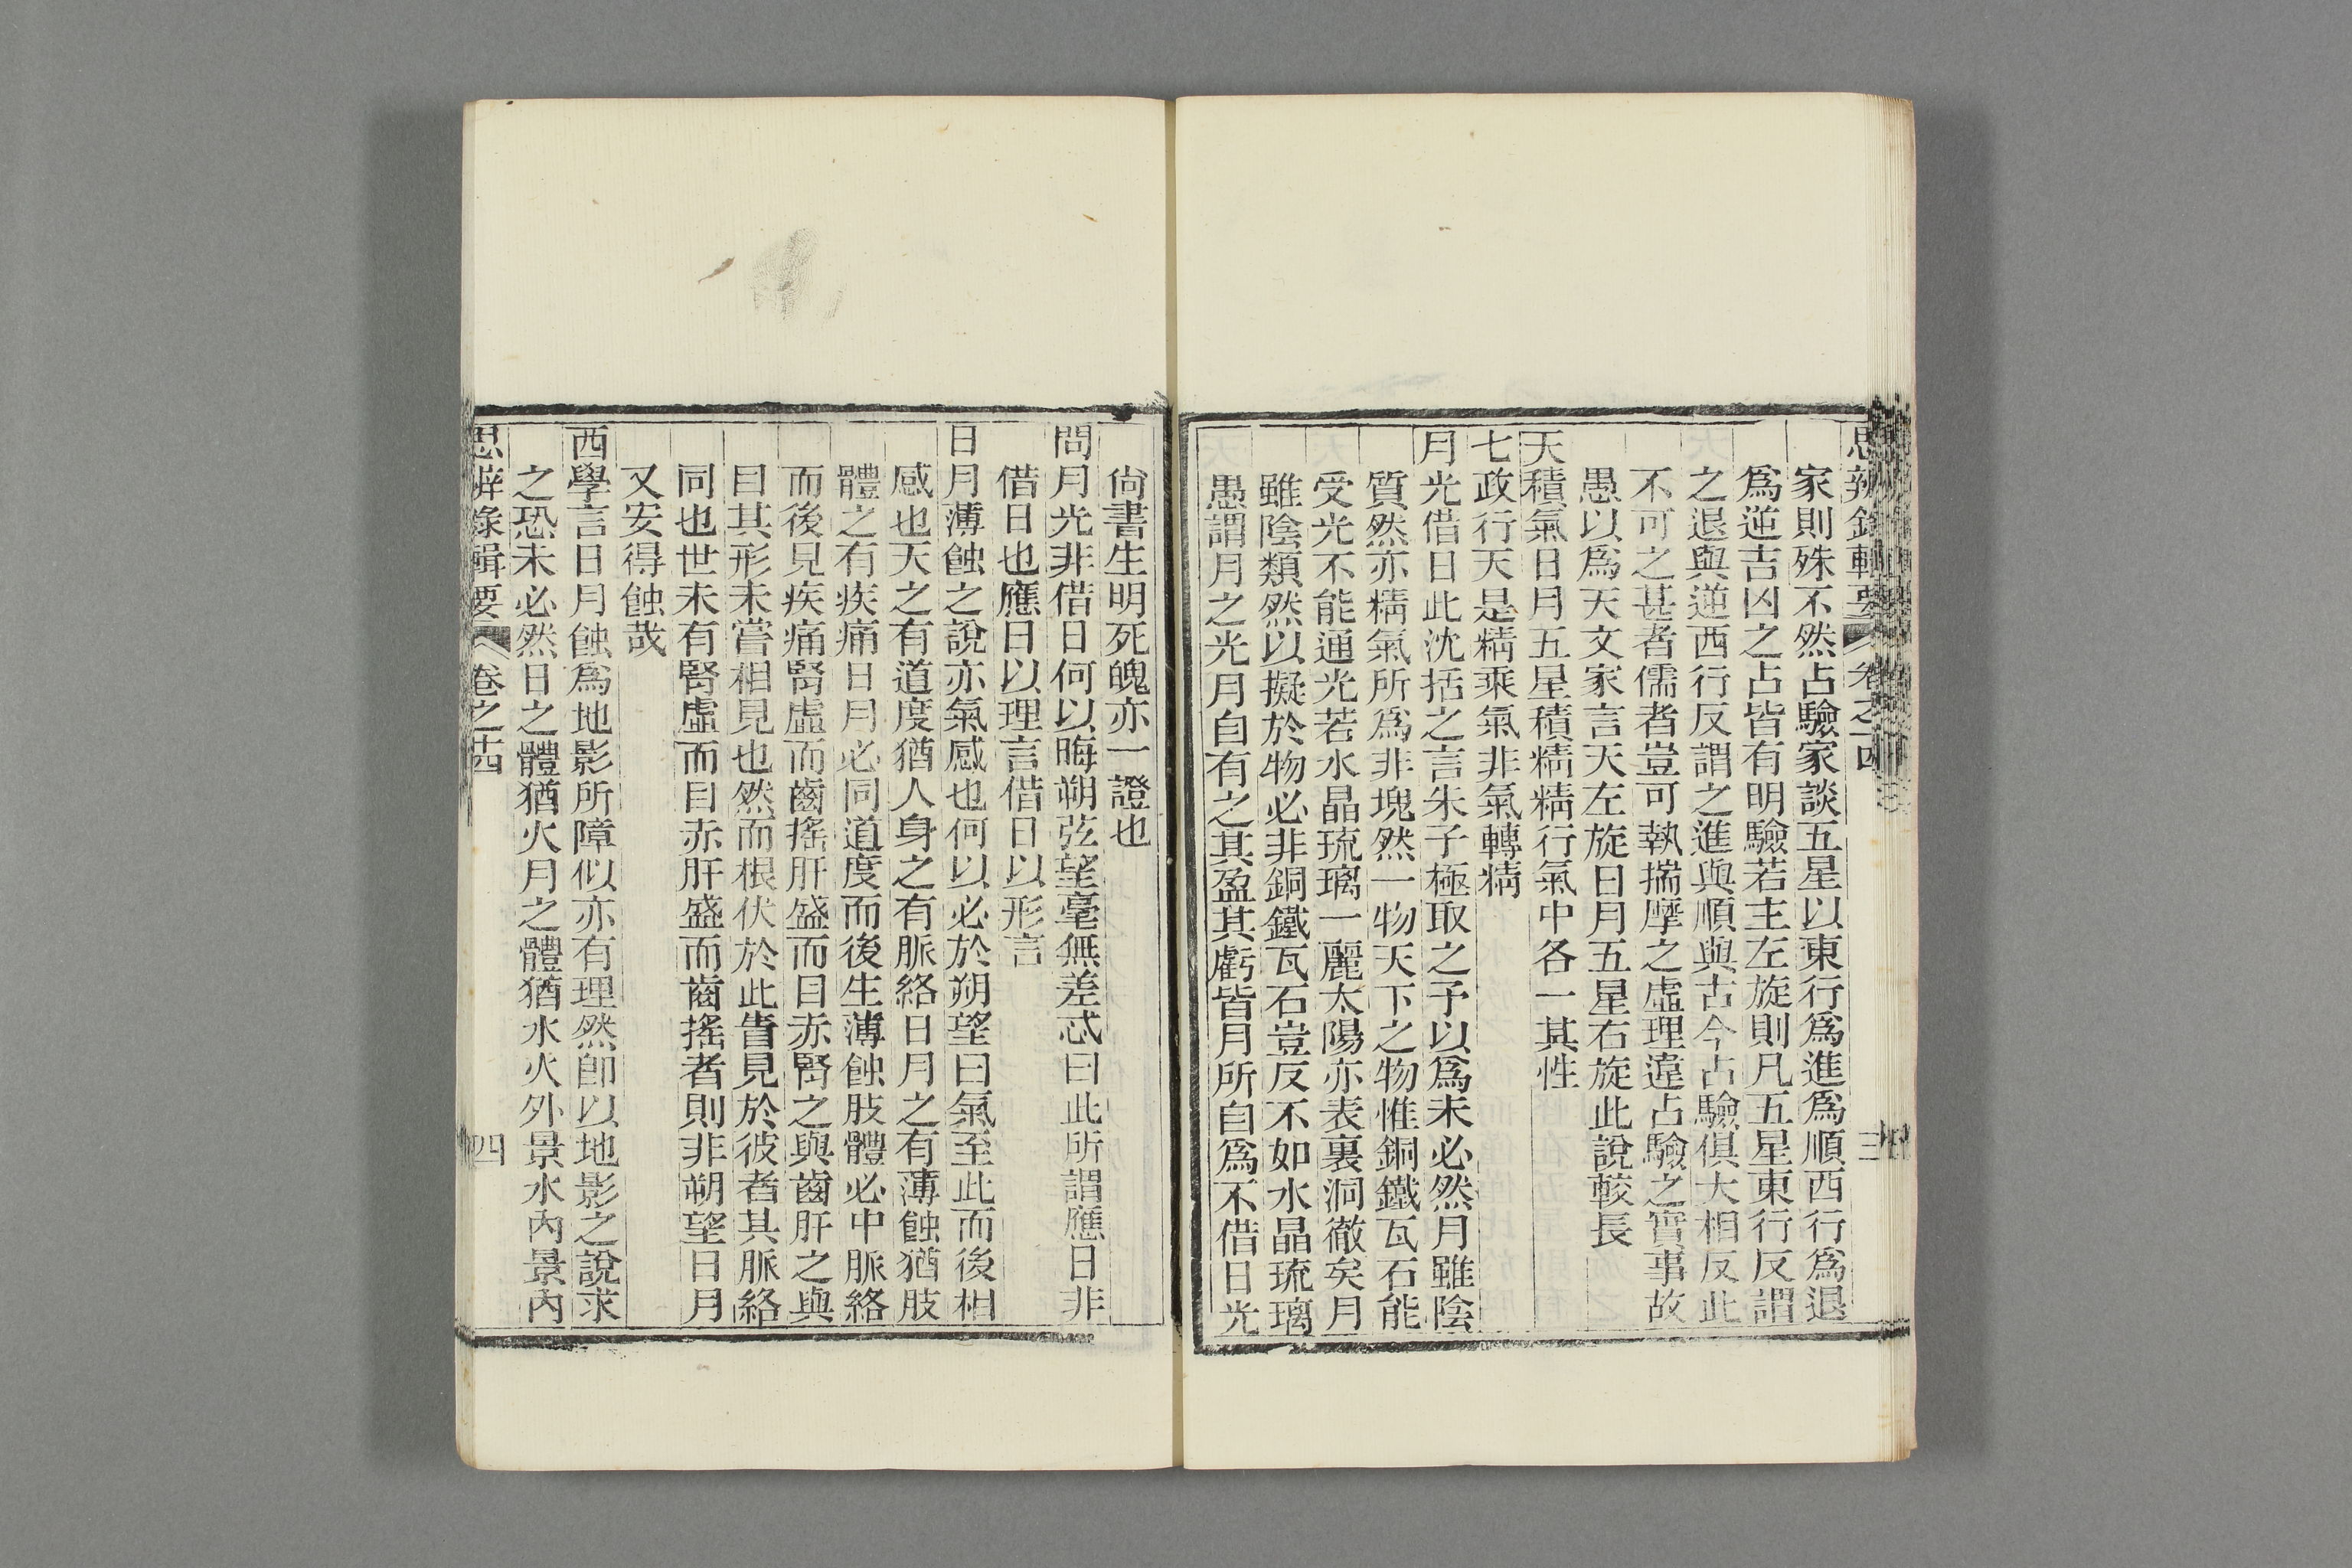 思辨錄輯要 卷之十四 三
家則殊不然占驗家談五星以東行爲進爲順西行爲退
爲逆吉凶之占皆有明驗若主左旋則凡五星東行反謂
之退與逆西行反謂之進與順與古今占驗俱大相反此
不可之甚者儒者豈可執揣摩之虛理違占驗之實事故
愚以爲天文家言天左旋日月五星右旋此說較長
天積氣日月五星積精精行氣中各一其性
七政行天是精乘氣非氣轉精
月光借日此沈括之言朱子極取之予以爲未必然月雖陰
質然亦精氣所爲非塊然一物天下之物惟銅鐵瓦石能
受光不能通光若水晶琉璃一麗太陽亦表裏洞徹矣月
雖陰類然以擬於物必非銅鐵瓦石豈反不如水晶琉璃
愚謂月之光月自有之其盈其虧皆月所自爲不借日光
尙書生明死魄亦一證也
問月光非借日何以晦朔弦望毫無差忒曰此所謂應日非
借日也應日以理言借日以形言
日月薄蝕之說亦氣感也何以必於朔望曰氣至此而後相
感也天之有道度猶人身之有脈絡日月之有薄蝕猶肢
體之有疾痛日月必同道度而後生薄蝕肢體必中脈絡
而後見疾痛腎虛而齒搖肝盛而目赤腎之與齒肝之與
目其形未嘗相見也然而根伏於此皆見於彼者其脈絡
同也世未有腎虛而目赤肝盛而齒搖者則非朔望日月
又安得蝕哉
西學言日月蝕爲地影所障似亦有理然卽以地影之說求
之恐未必然日之體猶火月之體猶水火外景水內景內
思辨錄輯要 卷之十四 四